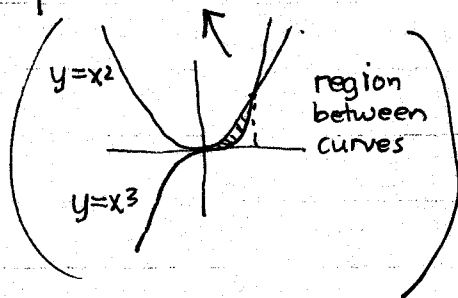 y=x2
region
between
curves
y=x3